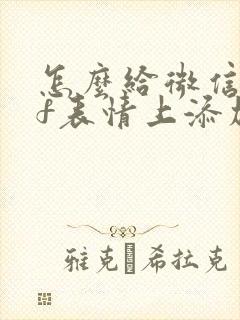 怎麼給微信
f表情上添加
雅克 希拉克